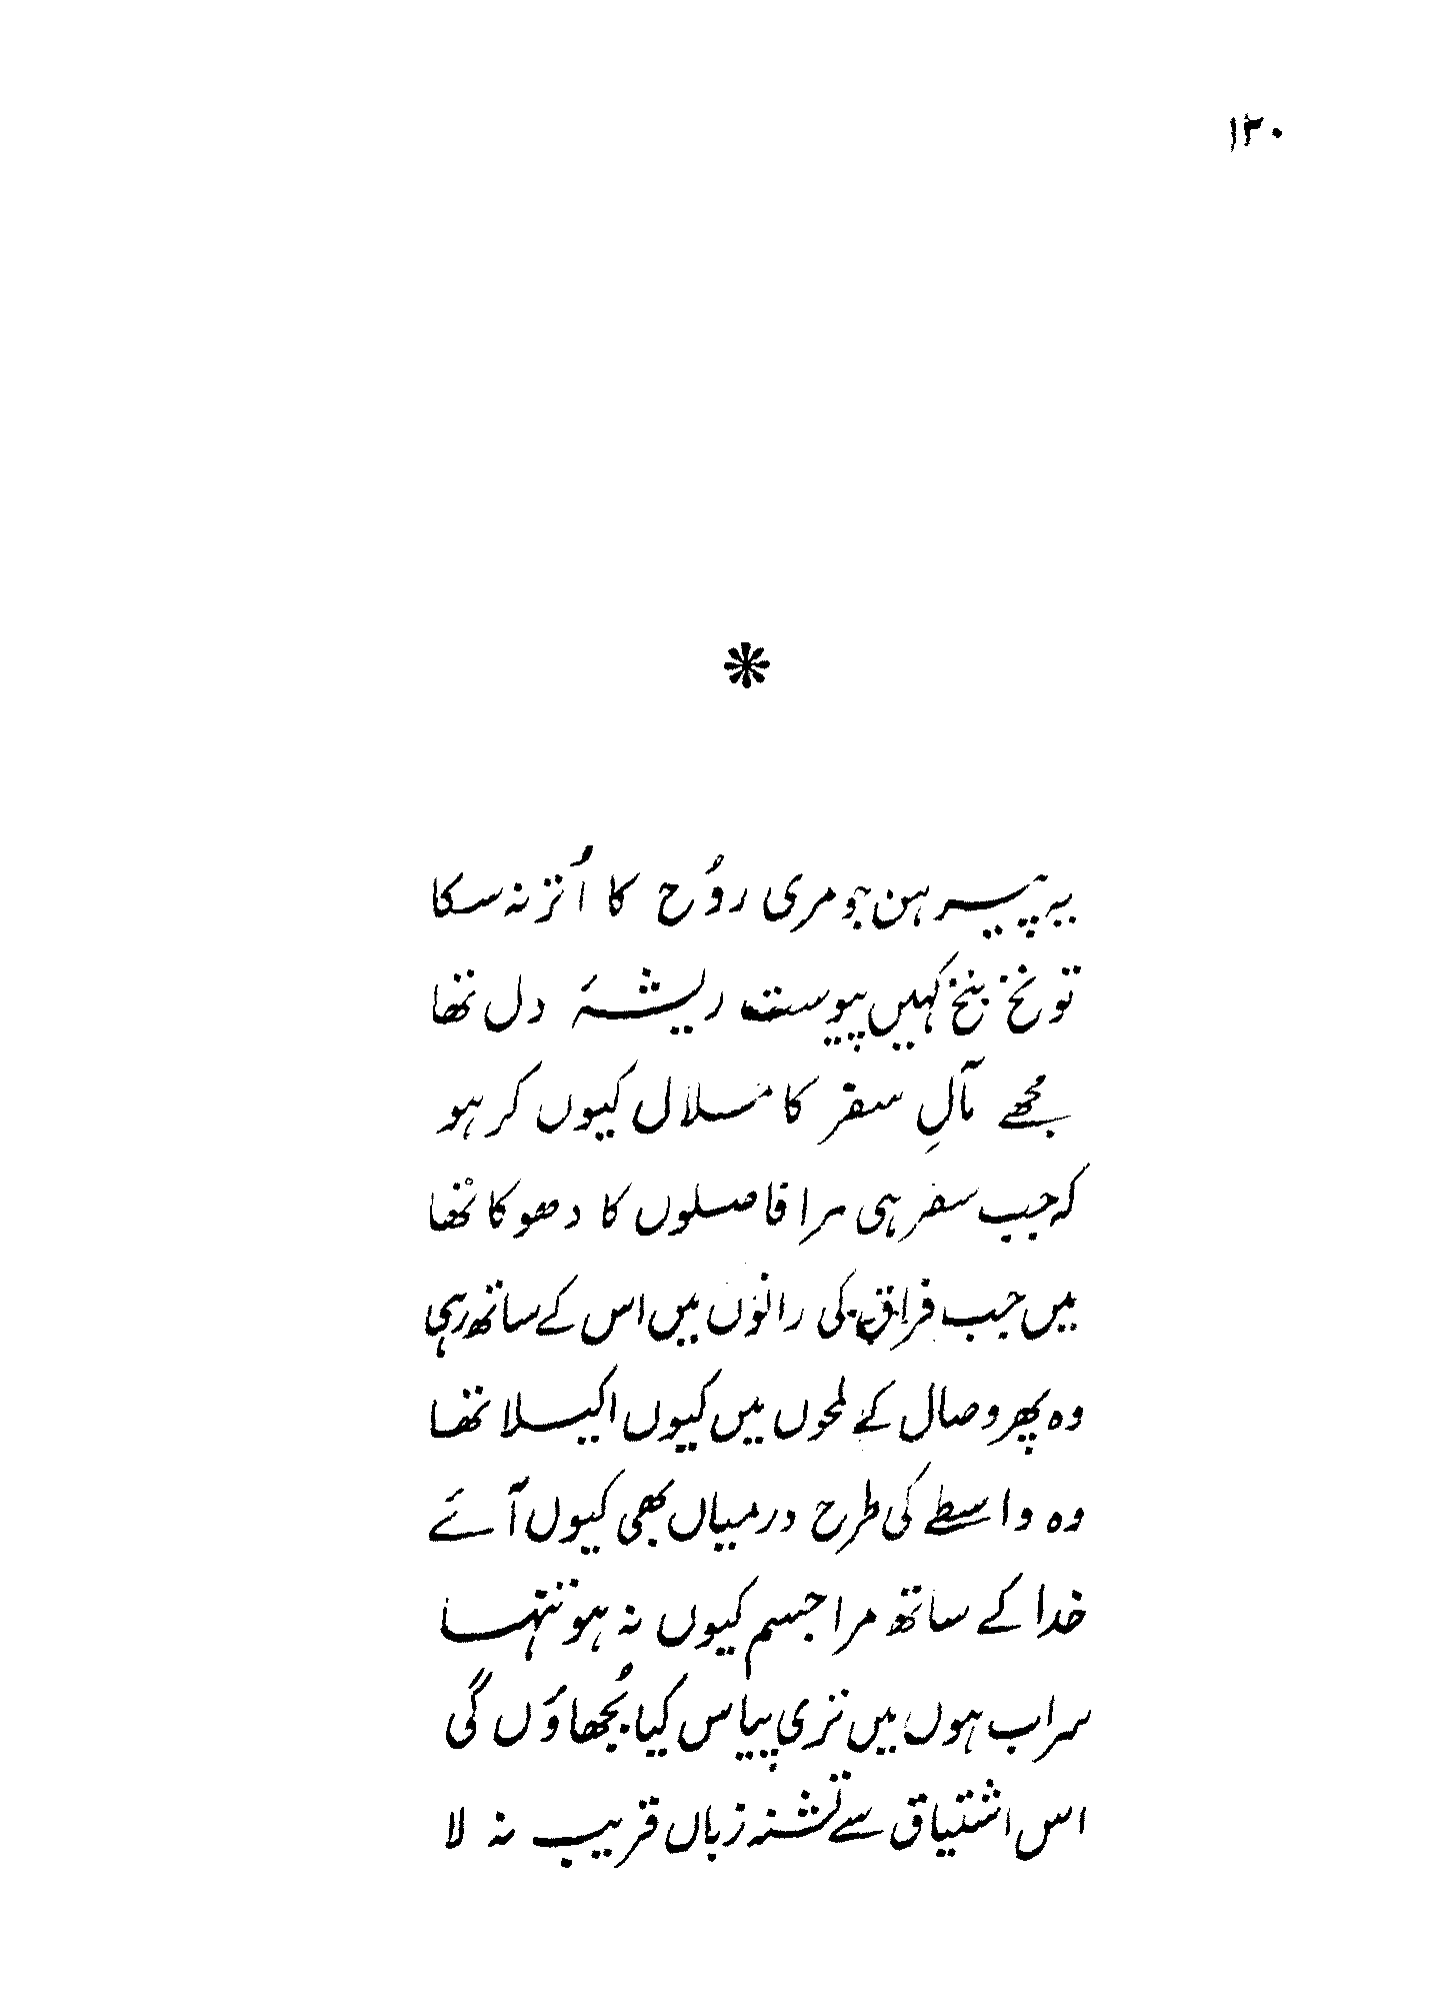 ۱۲۰
یہ پیرہن جو مری رُوح کا اُتر نہ سکا
تو نخ بنخ کہیں پیوست ریشۂ دل تھا
مُجھے مآلِ سفر کا ملال کیوں کر ہو
کہ جب سفر ہی مرا فاصلوں کا دھوکا تھا
میں جب فراق کی راتوں میں اس کے ساتھ رہی
وہ پھر وصال کے لمحوں میں کیوں اکیلا تھا
وہ واسطے کی طرح درمیاں بھی کیوں آئے
خدا کے ساتھ مرا جسم کیوں نہ ہو تنہا
سراب ہوں میں تری پیاس کیا بُجھاؤں گی
اس اشتیاق سے تشنہ زباں قریب نہ لا